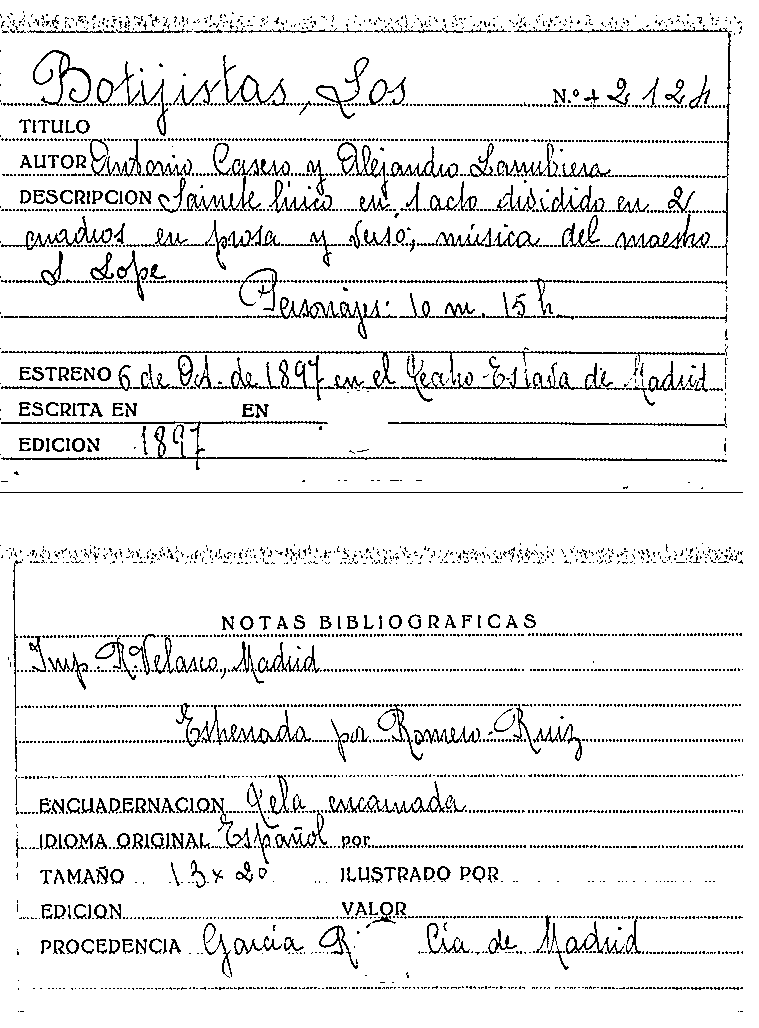 Botijistas, Los N.º + 2 1 2 4
TITULO
AUTOR Antonio Casero y Alejandro Larrubiera
DESCRIPCION Sainete lírico en 1 acto dividido en 2
cuadros en prosa y verso, música del maestro
S. Lope
Personajes: 10 m. 15 h.
ESTRENO 6 de Oct. de 1897 en el Teatro Eslava de Madrid
ESCRITA EN EN
EDICION 1897
NOTAS BIBLIOGRAFICAS
Imp. R. Velasco, Madrid
Estrenada por Romero-Ruiz
ENCUADERNACION Tela encarnada
IDIOMA ORIGINAL Español por
TAMAÑO 13 x 20 ILUSTRADO POR
EDICION VALOR
PROCEDENCIA García R. Cía de Madrid